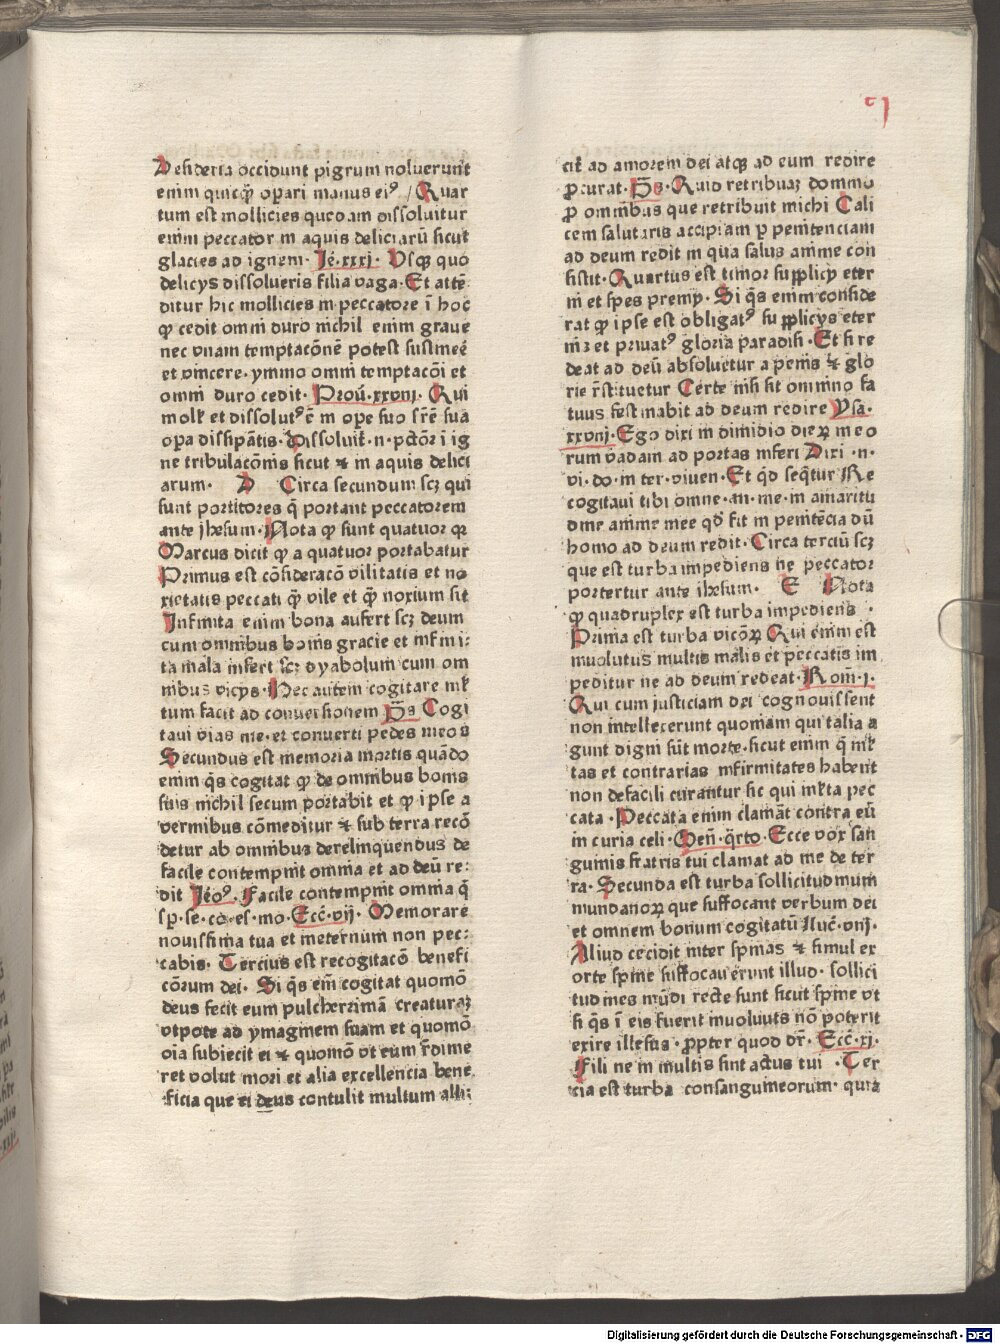 Desideria occidunt pigrum noluerunt
enim quicq̄ꝫ opari manus ei⁹ / Quar
tum est mollicies quedam dissoluitur
enim peccator in aquis deliciarū sicut
glacies ad ignem· Ie·xxxj· Vsqꝫ quo
delicijs dissolueris filia vaga· Et attē
ditur hic mollicies in peccatore ī hoc
ꝙ cedit omni duro nichil enim graue
nec vnam temptacōnē potest sustineē
et vincere· ymmo omni temptacōi et
omni duro cedit· Prou̅·xxviij· Qui
moll̕ et dissolut⁹ ē in ope suo fr̄e sūa
oꝑa dissipātis· Dissoluit̕·n·pctōr ī ig
ne tribulacōnis sicut ⁊ in aquis delici
arum· D Circa secundum scꝫ qui
sunt portitores q̄ portant peccatorem
ante jhesum· Nota ꝙ sunt quatuor qꝛ
Marcus dicit ꝙ a quatuor portabatur
Primus est cōsideracō vilitatis et no
xietatis peccati q̄ꝫ vile et q̄ꝫ noxium sit
Infinita enim bona aufert scꝫ deum
cum omnibus bonis gracie et infini:
ta mala infert scꝫ dyabolum cum om
nibus vicijs· Hec autem cogitare ml̕
tum facit ad conuersionem p̄s Cogi
taui vias me·et conuerti pedes meos
Secundus est memoria mortis quādo
enim q̄s cogitat ꝙ de omnibus bonis
suis nichil secum portabit et ꝙ ipse a
vermibus cōmeditur ⁊ sub terra recō
detur ab omnibus derelinquendus de
facile contempnit omnia et ad deū re:
dit Ieo⁹· Facile contempnit omnia q̄
sp̱·se·co·es·mo·Ecc̄·vij· Memorare
nouissima tua et ineternum non pec:
cabis· Tercius est recogitacō benefi
cōrum dei· Si q̄s em̄ cogitat quomō
deus fecit eum pulcherrimā creaturaꝫ
vtpote ad ymaginem suam et quomō
oīa subiecit ei ⁊ quomō vt eum r̄dime
ret volut mori et alia excellencia bene
ficia que ei deus contulit multum alli:
cit̕ ad amorem dei atqꝫ ad eum redire
ꝓcurat· p̄s· Quid retribuaꝫ domino
ꝓ omnibus que retribuit michi Cali
cem salutaris accipiam ꝑ penitenciam
ad deum redit in qua salus anime con
sistit· Quartus est timor supplicij eter
ni et spes premij· Si q̄s enim conside
rat ꝙ ipse est obligat⁹ supplicijs eter
nis et priuat⁹ gloria paradisi· Et si re
deat ad deū absoluetur a penis ⁊ glo
rie r̄stituetur Certe nisi sit omnino fa
tuus festinabit ad deum redire Ysa·
xxviij· Ego dixi in dimidio dieꝝ meo
rum vadam ad portas inferi Dixi·n·
vi·do·in ter·viuen· Et q̄d seq̄tur Re
cogitaui tibi omne·an·me·in amaritu
dine anime mee qd̕ fit in penitēcia dū
homo ad deum redit· Circa terciū scꝫ
que est turba impediens ne peccator
portertur ante ihesum· E Nota
ꝙ quadruplex est turba impediens ·
Prima est turba vicōꝝ Qui enim est
inuolutus multis malis et peccatis im
peditur ne ad deum redeat· Rom̄·j·
Qui cum justiciam dei cognouissent
non intellexerunt quoniam qui talia a
gunt digni sūt morte·sicut enim q̄ ml̕
tas et contrarias infirmitates habent
non defacili curantur sic qui ml̕ta pec
cata· Peccata enim clamāt contra eū
in curia celi· Gen̄·q̄rto· Ecce vox san
guinis fratris tui clamat ad me de ter
ra· Secunda est turba sollicitudinum
mundanoꝝ que suffocant verbum dei
et omnem bonum cogitatū Luc̄·viij·
Aliud cecidit inter spinas ⁊ simul ex
orte spine suffocauerunt illud· sollici
tudines mūdi recte sunt sicut spine vt
si q̄s ī eis fuerit inuoluuts nō poterit
exire illesus· ꝓpter quod dr̄· Ecc̄·xj·
Fili ne in multis sint actus tui · Ter
cia est turba consanguineorum· quia
Digitalisierung gefördert durch die Deutsche Forschungsgemeinschaft - DFG